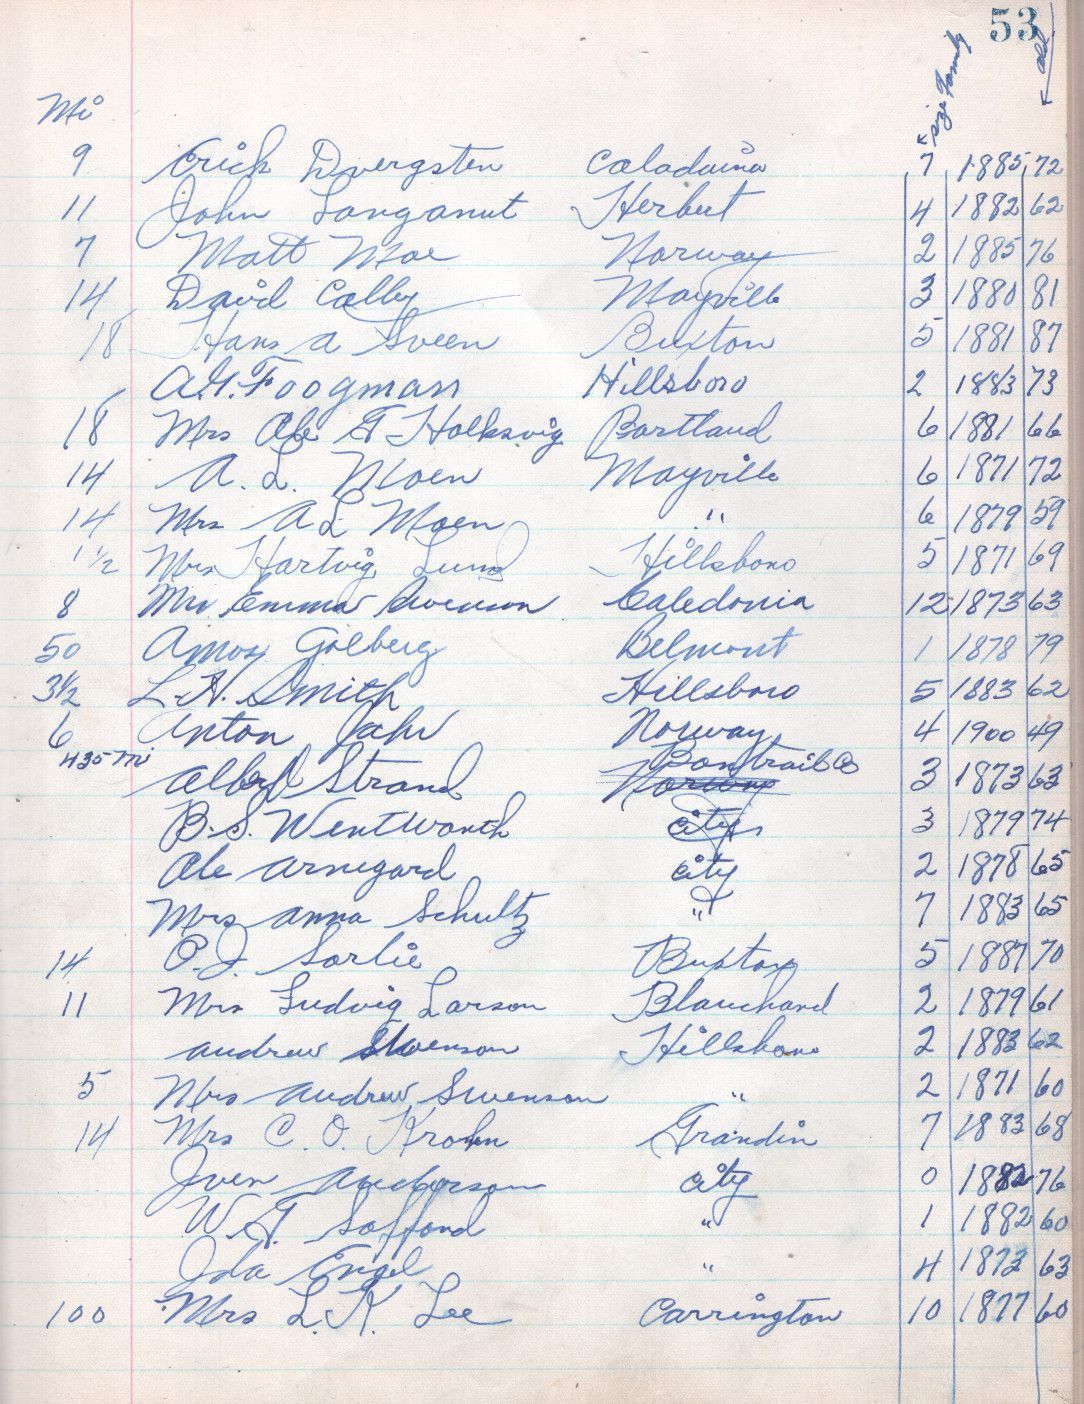 53
Mi size Family old
9 Erick Dvergsten Caladainia 7 1885 72
11 John Langanut Herbert 4 1882 62
7 Matt Moe Norway 2 1885 76
14 David Colby Mayville 3 1880 81
18 Hans A Sveen Buxton 5 1881 87
A.G. Foogman Hillsboro 2 1883 73
18 Mrs Ole G Holksvig Portland 6 1881 66
14 A. L. Moen Mayville 6 1871 72
14 Mrs A L Moen " 6 1879 59
1 1/2 Mrs Hartvig Lund Hillsboro 5 1871 69
8 Mrs Emma Swenson Caledonia 12 1873 63
50 Amos Golberg Belmont 1 1878 79
3 1/2 L. H. Smith Hillsboro 5 1883 62
6 Anton Jahr Norway 4 1900 49
435 mi Albert Strand Norway Bontrail Co 3 1873 63
B. S. Wentworth city 3 1879 74
Ole Arnegard city 2 1878 65
Mrs Anna Schultz " 7 1883 65
14 O. J. Sorlie Buxton 5 1887 70
11 Mrs Ludvig Larson Blanchard 2 1879 61
Andrew Swenson Hillsboro 2 1883 62
5 Mrs Andrew Swenson " 2 1871 60
14 Mrs C. O. Krohn Grandin 7 1883 68
Iven Anderson city 0 1882 76
W. G. Safford " 1 1882 60
Ida Engel " 4 1873 63
100 Mrs L. K. Lee Carrington 10 1877 60